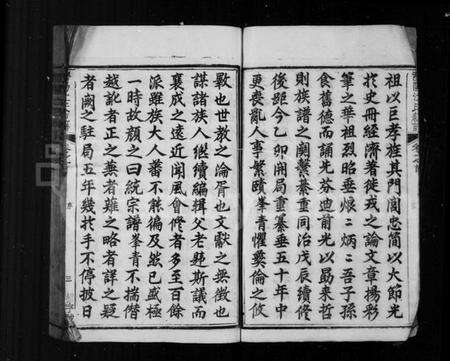 祖以巨孝旌其門閭忠簡以大節光
於史冊經濟著徙戎之論文章揚彩
筆之華祖烈昭垂烺烺炳炳吾子孫
食舊德而誦先芬迪前光以勗來哲
則族譜之闕繫綦重同治戊辰續修
後距今乙卯開局重纂垂五十年中
更喪亂人事繁賾峯青懼彝倫之攸
斁也世教之淪胥也文獻之無徵也
謀諸族人繼續編輯父老韙斯議而
襄成之遠近聞風會修者多至百餘
派雖族大人蕃不能徧及然已盛極
一時故顏之曰統宗譜峯青不揣僭
越訛者正之蕪者薙之略者詳之疑
者闕之駐局五年幾於手不停披日
序
三